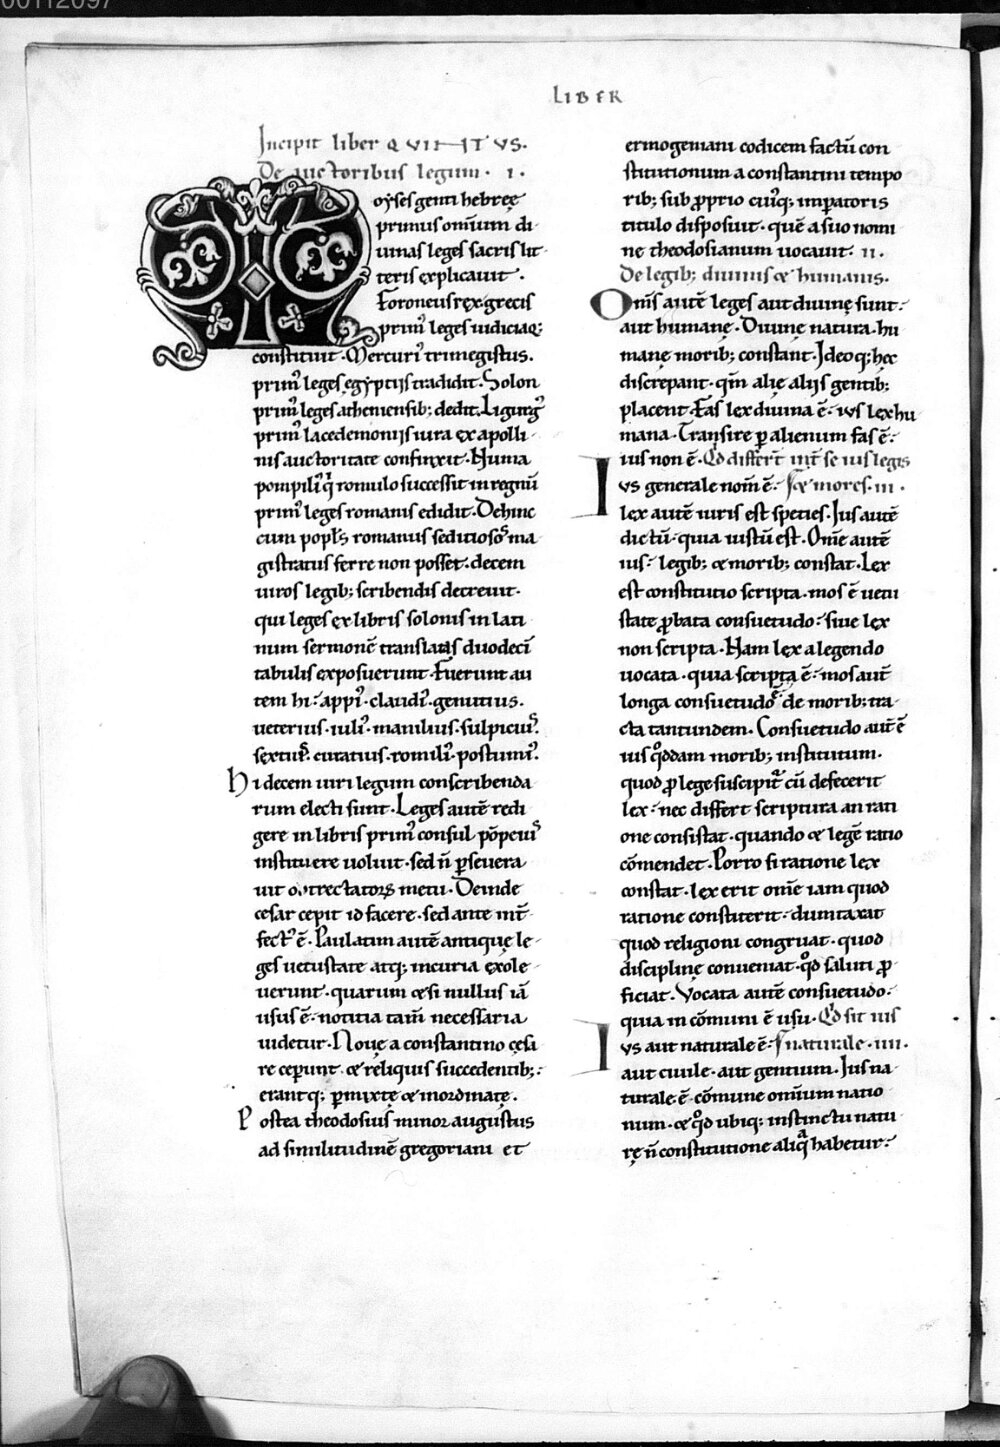 00112097
LIBER
Incipit liber QVINTVS.
De auctoribus legum. i.
Moyses genti hebreę
primus omnium di
uinas leges sacris lit
teris explicauit.
Foroneus rex grecis
prim᾽ leges iudiciaq;
constituit. Mercuri᾽ trimegistus.
prim᾽ leges ęgyptijs tradidit. Solon
prim᾽ leges atheniensib; dedit. Ligurg᾽
prim᾽ lacedemonijs iura ex apolli
nis auctoritate confinxit. Numa
pompili᾽ q̄ romulo successit in regnū
prim᾽ leges romanis edidit. Dehinc
cum popl᾽s romanus seditiosos ma
gistratus ferre non posset. decem
uiros legib; scribendis decreuit.
qui leges ex libris solonis in lati
num sermonē translatas duodecī
tabulis exposuerunt. Fuerunt au
tem hi. appi᾽. claudi᾽. genutius.
ueterius. iuli᾽. manilius. sulpicius᾽.
sextus᾽. curatius. romili᾽. postumi᾽.
Hi decem uiri legum conscribenda
rum electi sunt. Leges autē redi
gere in libris prim᾽ consul pōpeius᾽
instituere uoluit. sed n̄ pseuera
uit obtrectatorꝝ metu. Deinde
cesar cepit id facere. sed ante int̄
fect᾽ ē. Paulatim autē antique le
ges uetustate atq; incuria exole
uerunt. quarum & si nullus iā
usus ē. notitia tam̄ necessaria
uidetur. Nouę a constantino cesa
re ceperunt. & reliquis succedentib;.
erantq; pmixtę & inordinatę.
Postea theodosius minor augustus
ad similitudinē gregoriani et
ermogeniani codicem factū con
stitutionum a constantini tempo
rib; sub pprio cui᾽q; imperatoris
titulo disposuit. quē a suo nomi
ne theodosianum uocauit. ii.
De legib; diuinis & humanis.
Oms autē leges aut diuinę sunt.
aut humanę. Diuinę natura. hu
manę morib; constant. Ideoq; hęc
discrepant. qm̄ alię alijs gentib;
placent. Fas lex diuina ē. ius lex hu
mana. Transire p alienum fas ē.
ius non ē. Qd differt int̄ se ius leges
Ius generale nom̄ ē. & mores. iii.
lex autē iuris est species. Ius autē
dictū. quia iustū est. Om̄e autē
ius. legib; & morib; constat. Lex
est constitutio scripta. mos ē uetu
state pbata consuetudo. siue lex
non scripta. Nam lex a legendo
uocata. quia scripta ē. mos aut̄
longa consuetudo ē de morib; tra
cta tantundem. Consuetudo aut̄ ē
ius qddam morib; institutum.
quod p lege suscipit᾽ cū defecerit
lex. nec differt scriptura an rati
one consistat. quando & legē ratio
cōmendet. Porro si ratione lex
constat. lex erit om̄e iam quod
ratione constiterit. dumtaxat
quod religioni congruat. quod
disciplinę conueniat. qd saluti p
ficiat. Vocata autē consuetudo.
quia in cōmuni ē usu. Qd sit ius
Ius aut naturale ē. naturale. iiii.
aut ciuile. aut gentium. Ius na
turale ē. cōmune omnium natio
num. & qd ubiq; instinctu natu
rę n̄ constitutione aliqa habetur.